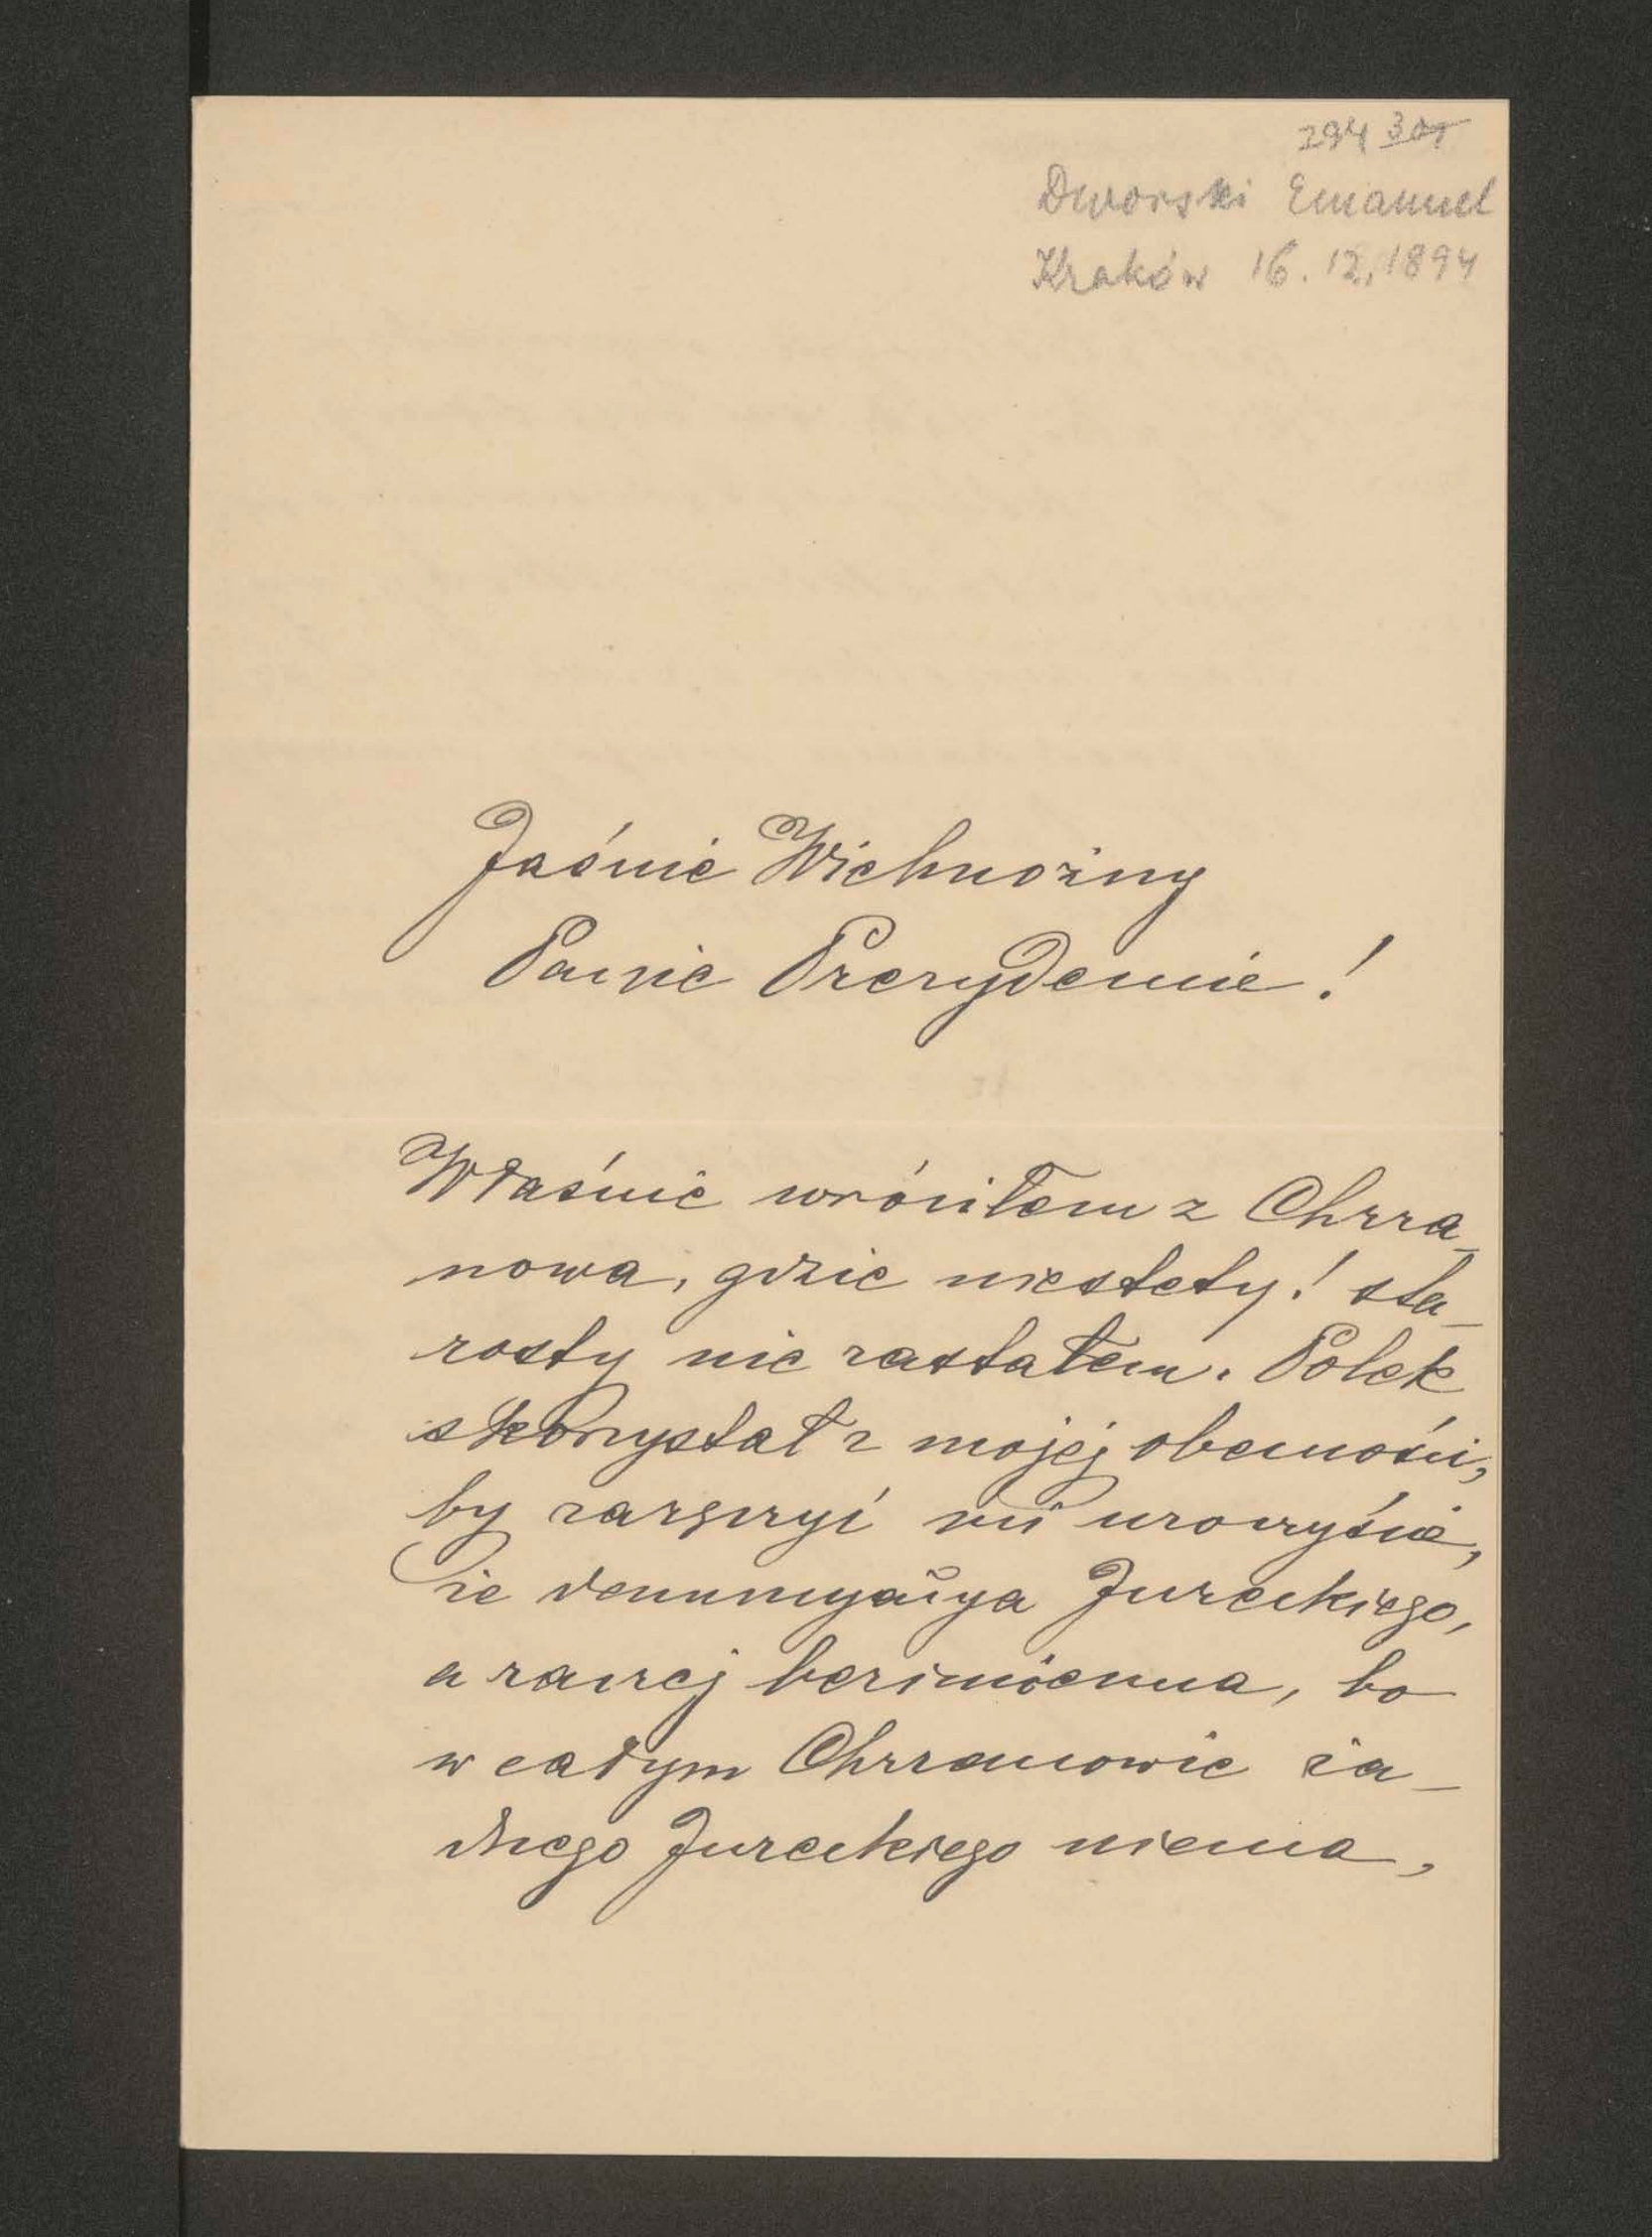 294 301
Dworski Emanuel
Kraków 16.12.1894
Jaśnie Wielmożny
Panie Prezydencie!
Właśnie wróciłem z Chrza_
nowa, gdzie niestety! sta_
rosty nie zastałem. Polek
skorzystał z mojej obecności,
by zaręczyć mi uroczyście,
że denuncyacya Jureckiego,
a raczej bezimienna, bo
w całym Chrzanowie ża_
dnego Jureckiego niema,